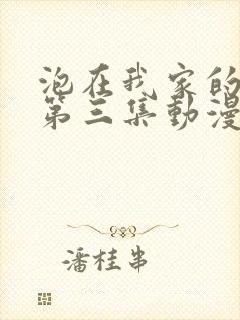 泡在我家的
第三集動漫
潘桂串